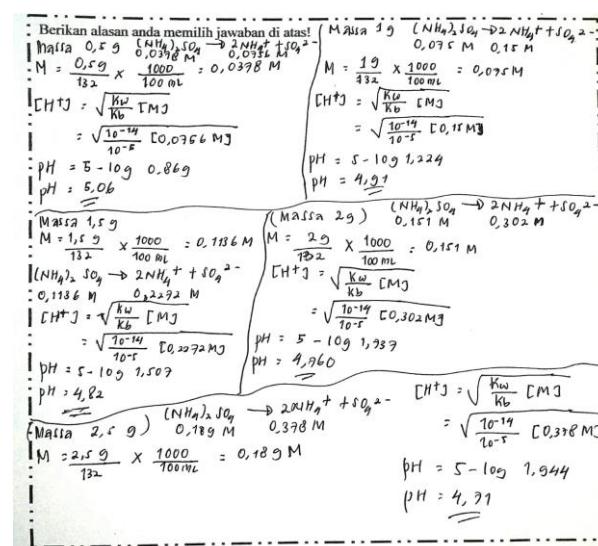 Berikan alasan anda memilih jawaban di atas!
Massa 0,5 g (NH4)2SO4 → 2NH4+ + SO4 2-
0,0378 M 0,0756 M
M = 0,5 g / 132 × 1000 / 100 mL = 0,0378 M
[H+] = √ Kw / Kb [M]
= √ 10-14 / 10-5 [0,0756 M]
pH = 5 - log 0,869
pH = 5,06
Massa 1 g (NH4)2SO4 → 2 NH4+ + SO4 2-
0,075 M 0,15 M
M = 1 g / 132 × 1000 / 100 mL = 0,075 M
[H+] = √ Kw / Kb [M]
= √ 10-14 / 10-5 [0,15 M]
pH = 5 - log 1,224
pH = 4,91
Massa 1,5 g
M = 1,5 g / 132 × 1000 / 100 ml = 0,1136 M
(NH4)2 SO4 → 2NH4+ + SO4 2-
0,1136 M 0,2272 M
[H+] = √ Kw / Kb [M]
= √ 10-14 / 10-5 [0,2272 M]
pH = 5 - log 1,507
pH = 4,82
(Massa 2 g) (NH4)2 SO4 → 2NH4+ + SO4 2-
0,151 M 0,302 M
M = 2 g / 132 × 1000 / 100 mL = 0,151 M
[H+] = √ Kw / Kb [M]
= √ 10-14 / 10-5 [0,302 M]
pH = 5 - log 1,737
pH = 4,760
(Massa 2,5 g) (NH4)2 SO4 → 2NH4+ + SO4 2-
0,189 M 0,378 M
M = 2,5 g / 132 × 1000 / 100 mL = 0,189 M
[H+] = √ Kw / Kb [M]
= √ 10-14 / 10-5 [0,378 M]
pH = 5 - log 1,944
pH = 4,71